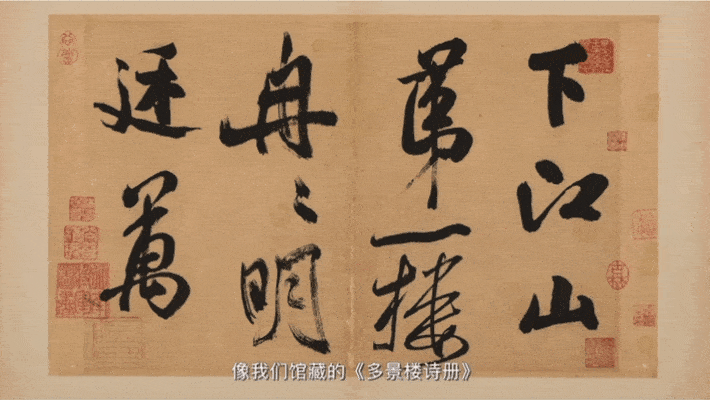 下江山
第一楼
冉〻明
廷萬
像我们馆藏的《多景楼诗册》